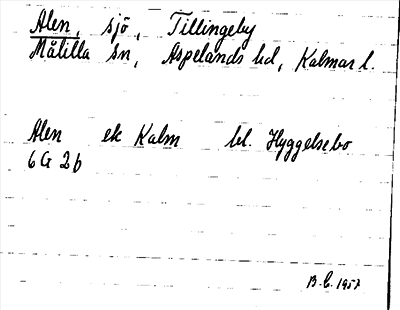 Alen, sjö, Tillingeby
Målilla sn, Aspelands hd, Kalmar l.
Alen ek Kalm bl. Hyggelsebo
6G 2b
B.C. 1957